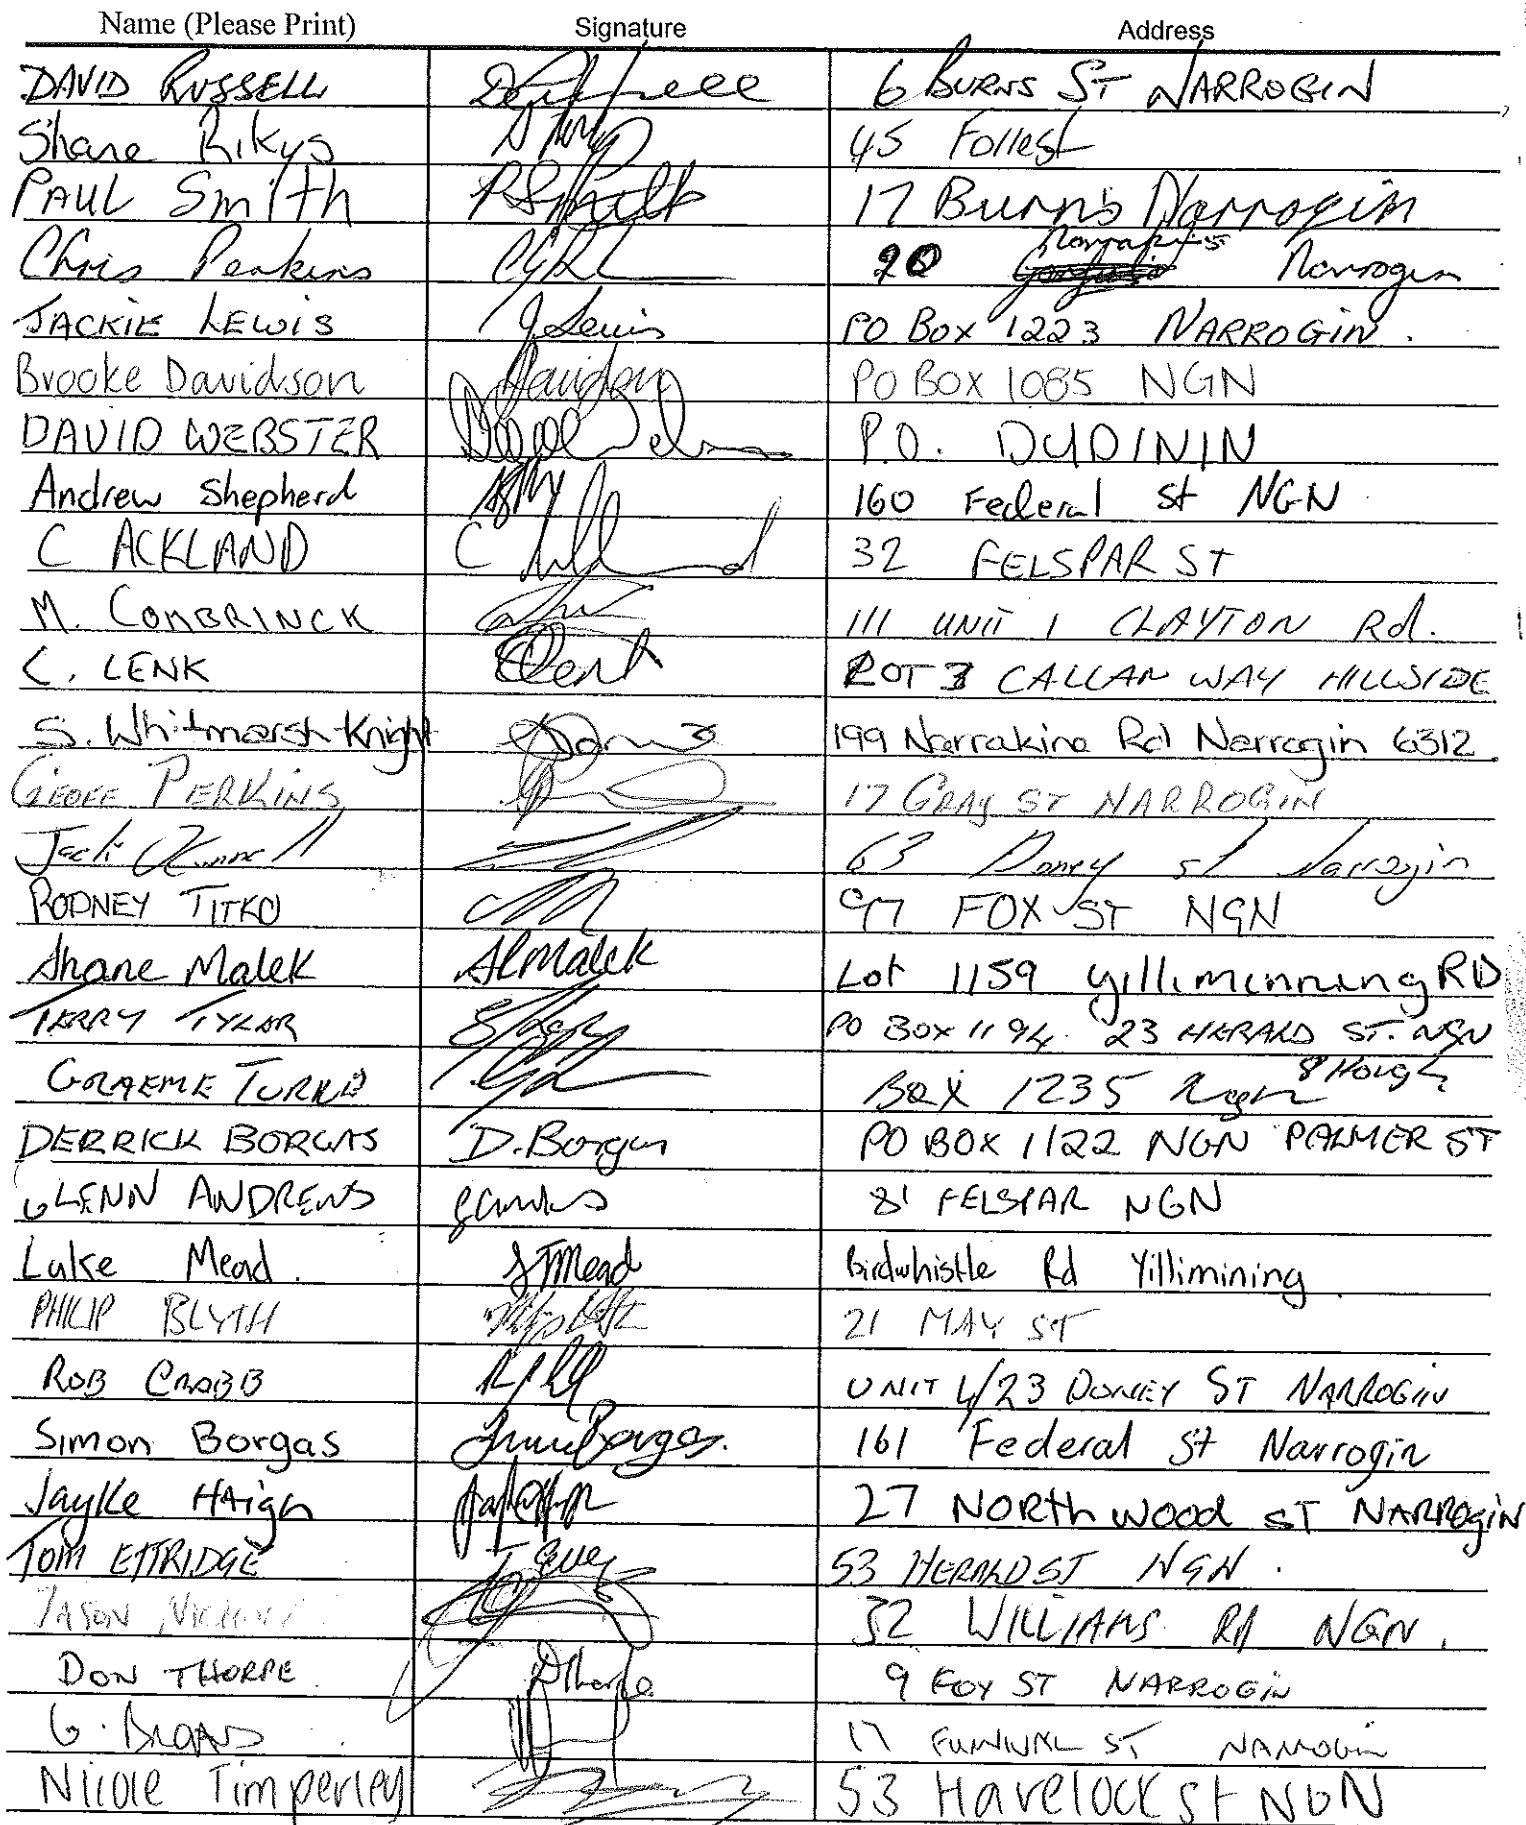 Name (Please Print) Signature Address
DAVID RUSSELL 6 BURNS ST NARROGIN
Shane Rikys 45 Follest
PAUL Smith PSmith 17 Burns Narrogin
Chris Perkins 20 Narrogin
JACKIE LEWIS JLewis PO Box 1223 NARROGIN.
Brooke Davidson Davidson PO BOX 1085 NGN
DAVID WEBSTER P.O. DUDININ
Andrew Shepherd 160 Federal St NGN
C ACKLAND 32 FELSPAR ST
M. COMBRINCK 111 UNIT 1 CLAYTON Rd.
C. LENK CLenk LOT 3 CALLAN WAY HILLSIDE
S. Whitmarsh-Knight 199 Narrakine Rd Narrogin 6312
GEOFF PERKINS 17 GRAY ST NARROGIN
Jack 63 Doney st Narrogin
RODNEY TITKO 97 FOX ST NGN
Shane Malek SLMalek Lot 1159 Yilliminning RD
TERRY TYLER PO BOX 1194. 23 HERALD ST. NGN
GRAEME TURNER Box 1235 Ngn 8 Hough
DERRICK BORGAS D. Borgas PO BOX 1122 NGN PALMER ST
GLENN ANDREWS 81 FELSPAR NGN
Luke Mead. LTMead Birdwhistle Rd Yillimining.
PHILIP BLYTH 21 MAY ST
ROB CRABB UNIT 4/23 DONEY ST NARROGIN
Simon Borgas Simon Borgas. 161 Federal St Narrogin
Jayke Haigh 27 NORTHWOOD ST NARROGIN
TOM ETTRIDGE 53 HERALD ST NGN.
JASON 32 WILLIAMS Rd NGN.
DON THORPE DThorpe 9 FOX ST NARROGIN
G. 17 ST NARROGIN
Nicole Timperley 53 Havelock St NGN